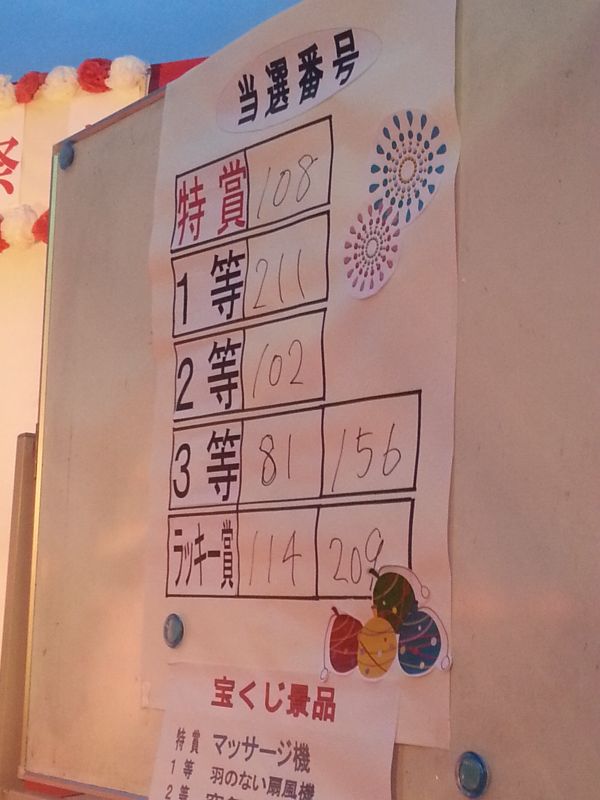 祭
当選番号
特賞 108
1等 211
2等 102
3等 81 156
ラッキー賞 114 209
宝くじ景品
特賞 マッサージ機
1等 羽のない扇風機
2等